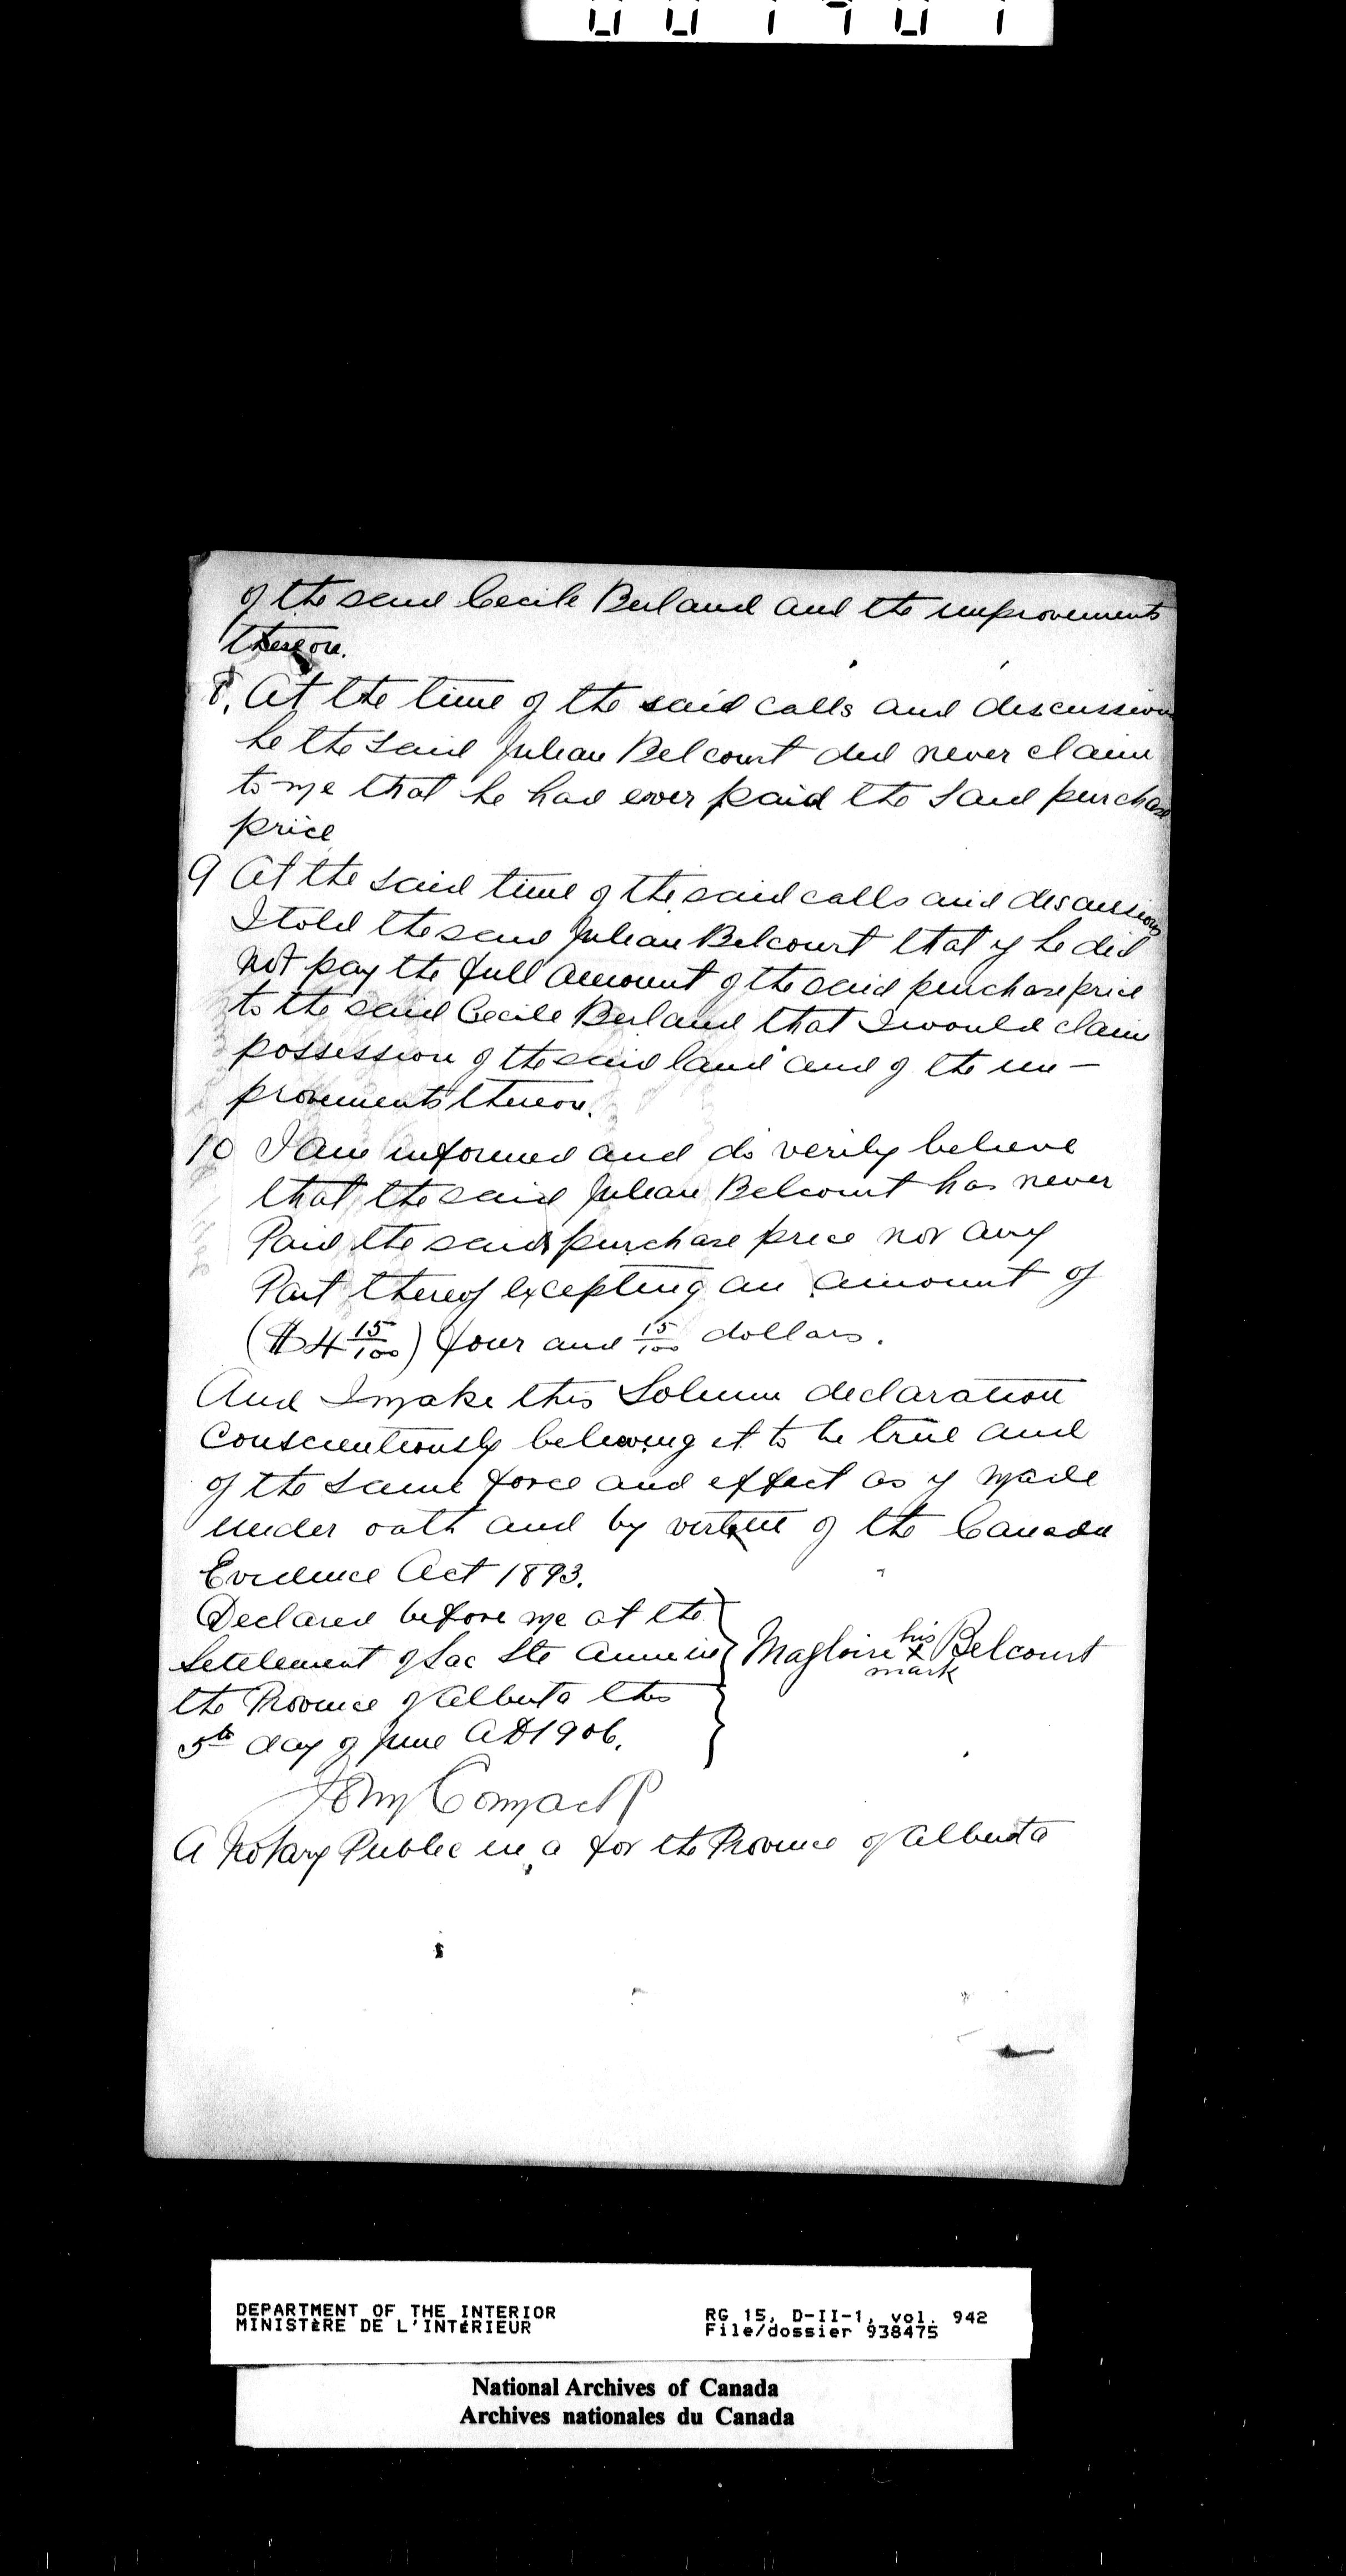 of the said Cecile Berland and the improvements
thereon.
8. At the time of the said calls and discussion
he the said Julian Belcourt did never claim
to me that he had ever paid the said purchase
price
9 At the said time of the said calls and discussions
I told the said Julian Belcourt that if he did
not pay the full amount of the said purchase price
to the said Cecile Berland that I would claim
possession of the said land and of the im-
provements thereon.
10 I am informed and do verily believe
that the said Julian Belcourt has never
Paid the said purchase price nor any
Part thereof excepting an amount of
($4 15/100) four and 15/100 dollars.
And I make this Solemn declaration
Conscientiously believing it to be true and
of the same force and effect as if made
under oath and by virtue of the Canada
Evidence Act 1893.
Declared before me at the
Settlement of Lac Ste Anne in
the Province of Alberta this
5th day of June AD 1906.
Magloire his x mark Belcourt
A Notary Public in a for the Province of Alberta
DEPARTMENT OF THE INTERIOR
MINISTÈRE DE L'INTÉRIEUR
RG 15, D-II-1, vol. 942
File/dossier 938475
National Archives of Canada
Archives nationales du Canada